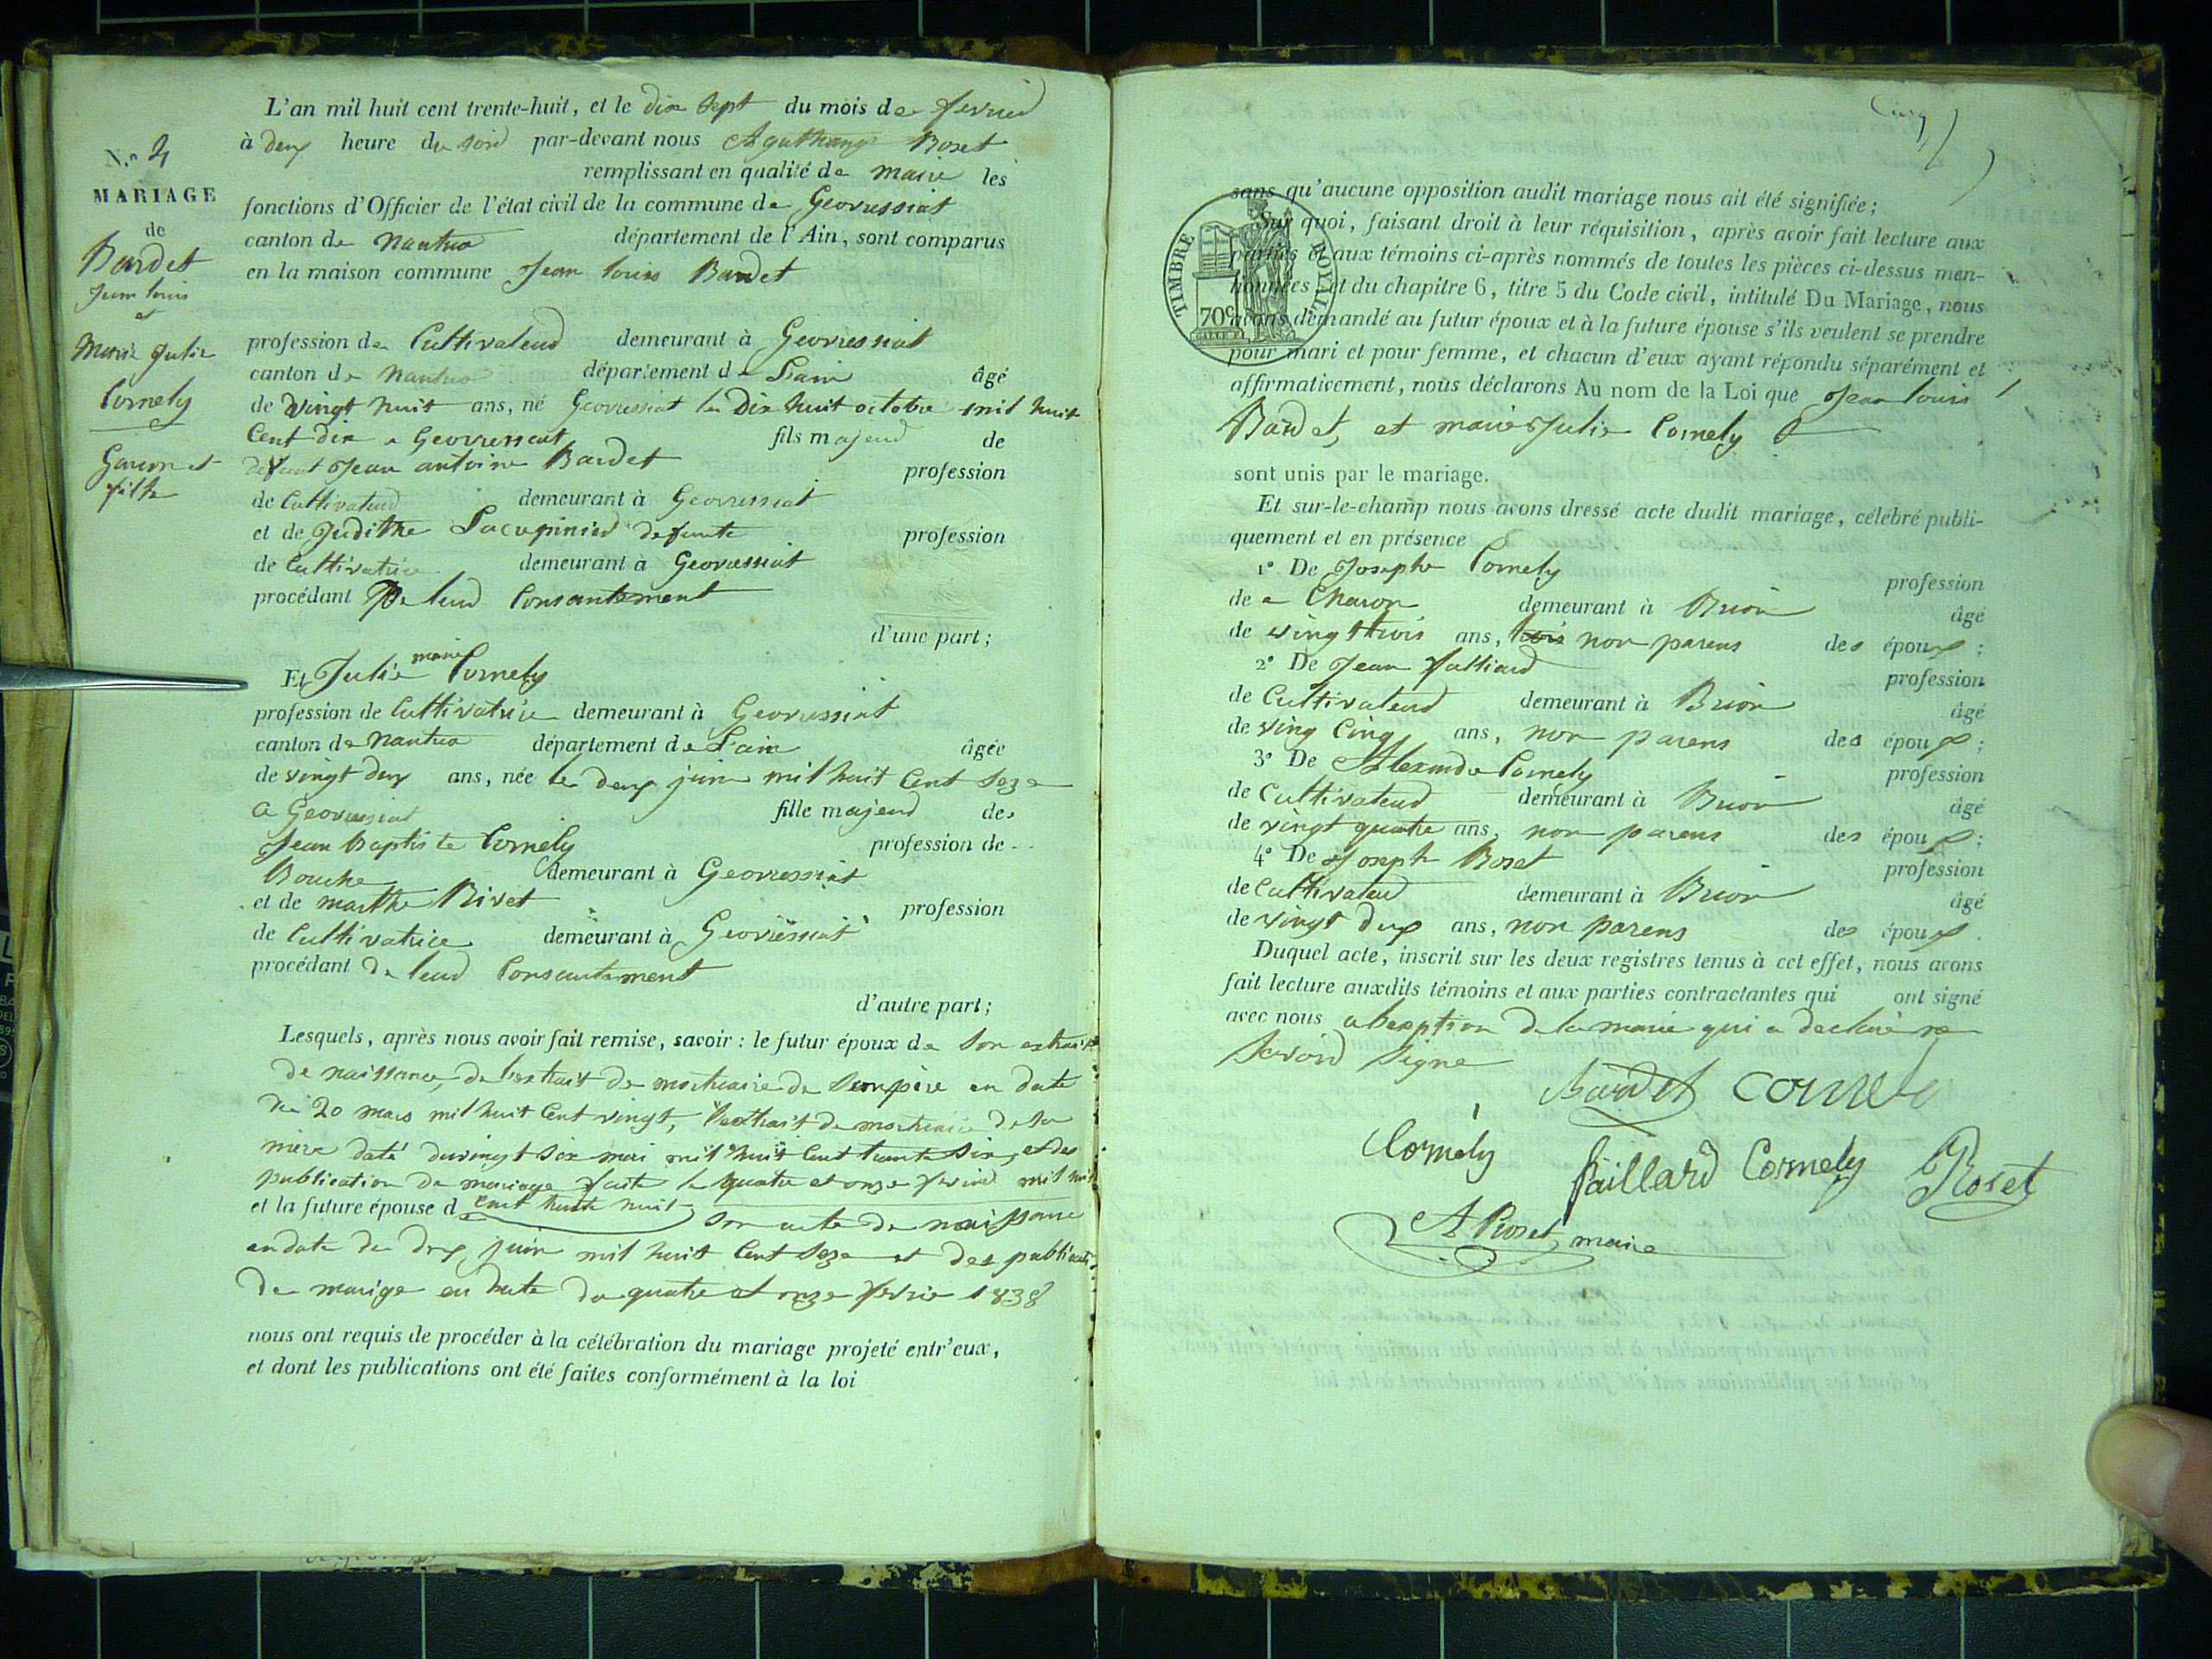 L'an mil huit cent trente-huit, et le dix sept du mois de fevrier
à deux heure du soir par-devant nous Agathange Roset
remplissant en qualité de maire les
fonctions d'Officier de l'état civil de la commune de Geovressiat
canton de nantua département de l'Ain, sont comparus
en la maison commune Jean louis Bardet
profession de Cultivateur demeurant à Geovressiat
canton de nantua département de L'ain âgé
de vingt huit ans, né Geovressiat le Dix huit octobre mil huit
Cent dix a Geovressiat fils majeur de
defunt Jean antoine Bardet profession
de Cultivateur demeurant à Geovressiat
et de Judithe defunte profession
de Cultivatrice demeurant à Geovressiat
procédant De leur Consantement
d'une part;
N.º
MARIAGE
de
Bardet
Jean louis
et
Marie Julie
Cornely
Garcon et
fille
Et Julie marie Cornely
profession de Cultivatrice demeurant à Geovressiat
canton de Nantua département de L'ain âgée
de vingt deux ans, née le deux juin mil huit Cent seze
a Geovressiat fille majeur des
Jean Baptiste Cornely profession de
Bouche demeurant à Geovressiat
et de marthe Rivet profession
de Cultivatrice demeurant à Geovressiat
procédant de leur Consantement
d'autre part;
Lesquels, après nous avoir fait remise, savoir: le futur époux de son extrait
de naissance, de l'extrait de mortuaire de son père en date
du 20 mars mil huit Cent vingt, l'extrait de mortuaire de sa
mère daté du vingt six mai mil huit Cent trente six, et des
publication de mariage faite le quatre et onze fevrier mil huit
et la future épouse d cent trente huit son acte de naissance
en date du deux juin mil huit Cent seze et des publication
de marige en date du quatre et onze fevrie 1838
nous ont requis de procéder à la célébration du mariage projeté entr'eux,
et dont les publications ont été faites conformément à la loi
Cinq
TIMBRE ROYAL
70c
sans qu'aucune opposition audit mariage nous ait été signifiée;
Sur quoi, faisant droit à leur réquisition, après avoir fait lecture aux
parties et aux témoins ci-après nommés de toutes les pièces ci-dessus men-
tionnées, et du chapitre 6, titre 5 du Code civil, intitulé Du Mariage, nous
avons demandé au futur époux et à la future épouse s'ils veulent se prendre
pour mari et pour femme, et chacun d'eux ayant répondu séparément et
affirmativement, nous déclarons Au nom de la Loi que Jean louis
Bardet, et marie Julie Cornely
sont unis par le mariage.
Et sur-le-champ nous avons dressé acte dudit mariage, célébré publi-
quement et en présence
1º De Josephe Cornely profession
de demeurant à Brion âgé
de vingt trois ans, non parens des époux;
2º De Jean falliard profession
de Cultivateur demeurant à Brion âgé
de ving Cinq ans, non parens des époux;
3º De Alexandre Cornely profession
de Cultivateur demeurant à Brion âgé
de vingt quatre ans, non parens des époux;
4º De Joseph Roset profession
de Cultivateur demeurant à Brion âgé
de vingt deux ans, non parens des époux.
Duquel acte, inscrit sur les deux registres tenus à cet effet, nous avons
fait lecture auxdits témoins et aux parties contractantes qui ont signé
avec nous de la marie qui a declaré ne
Savoir Signe
Bardet Cornely
Cornely faillard Cornely Roset
A Roset maire